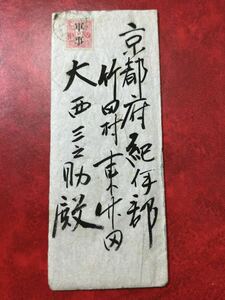 軍事
京都府紀伊郡
竹田村東竹田
大西三之助殿